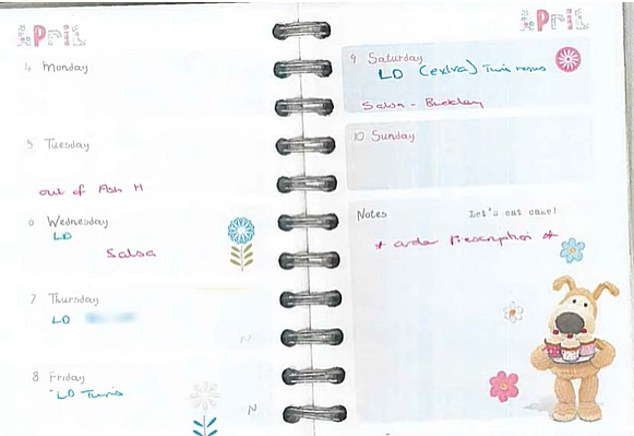 APRIL
4 Monday
5 Tuesday
out of Ash H
6 Wednesday
LD
Salsa
7 Thursday
LD
N
8 Friday
LD Twins
N
APRIL
9 Saturday
LD (extra) Twins
Salsa - Buckley
10 Sunday
Notes
Let's eat cake!
* order Prescription *